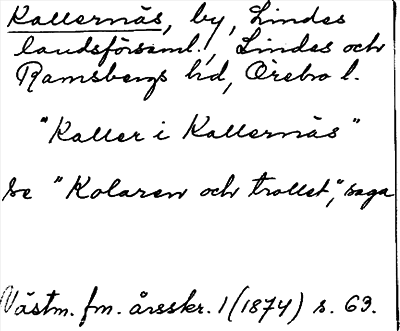 Kallernäs, by, Lindes
landsförsaml., Lindes och
Ramsbergs hd, Örebro l.
"Kaller i Kallernäs"
se "Kolaren och trollet", saga
Västm. fm. årsskr. 1 (1874) s. 63.